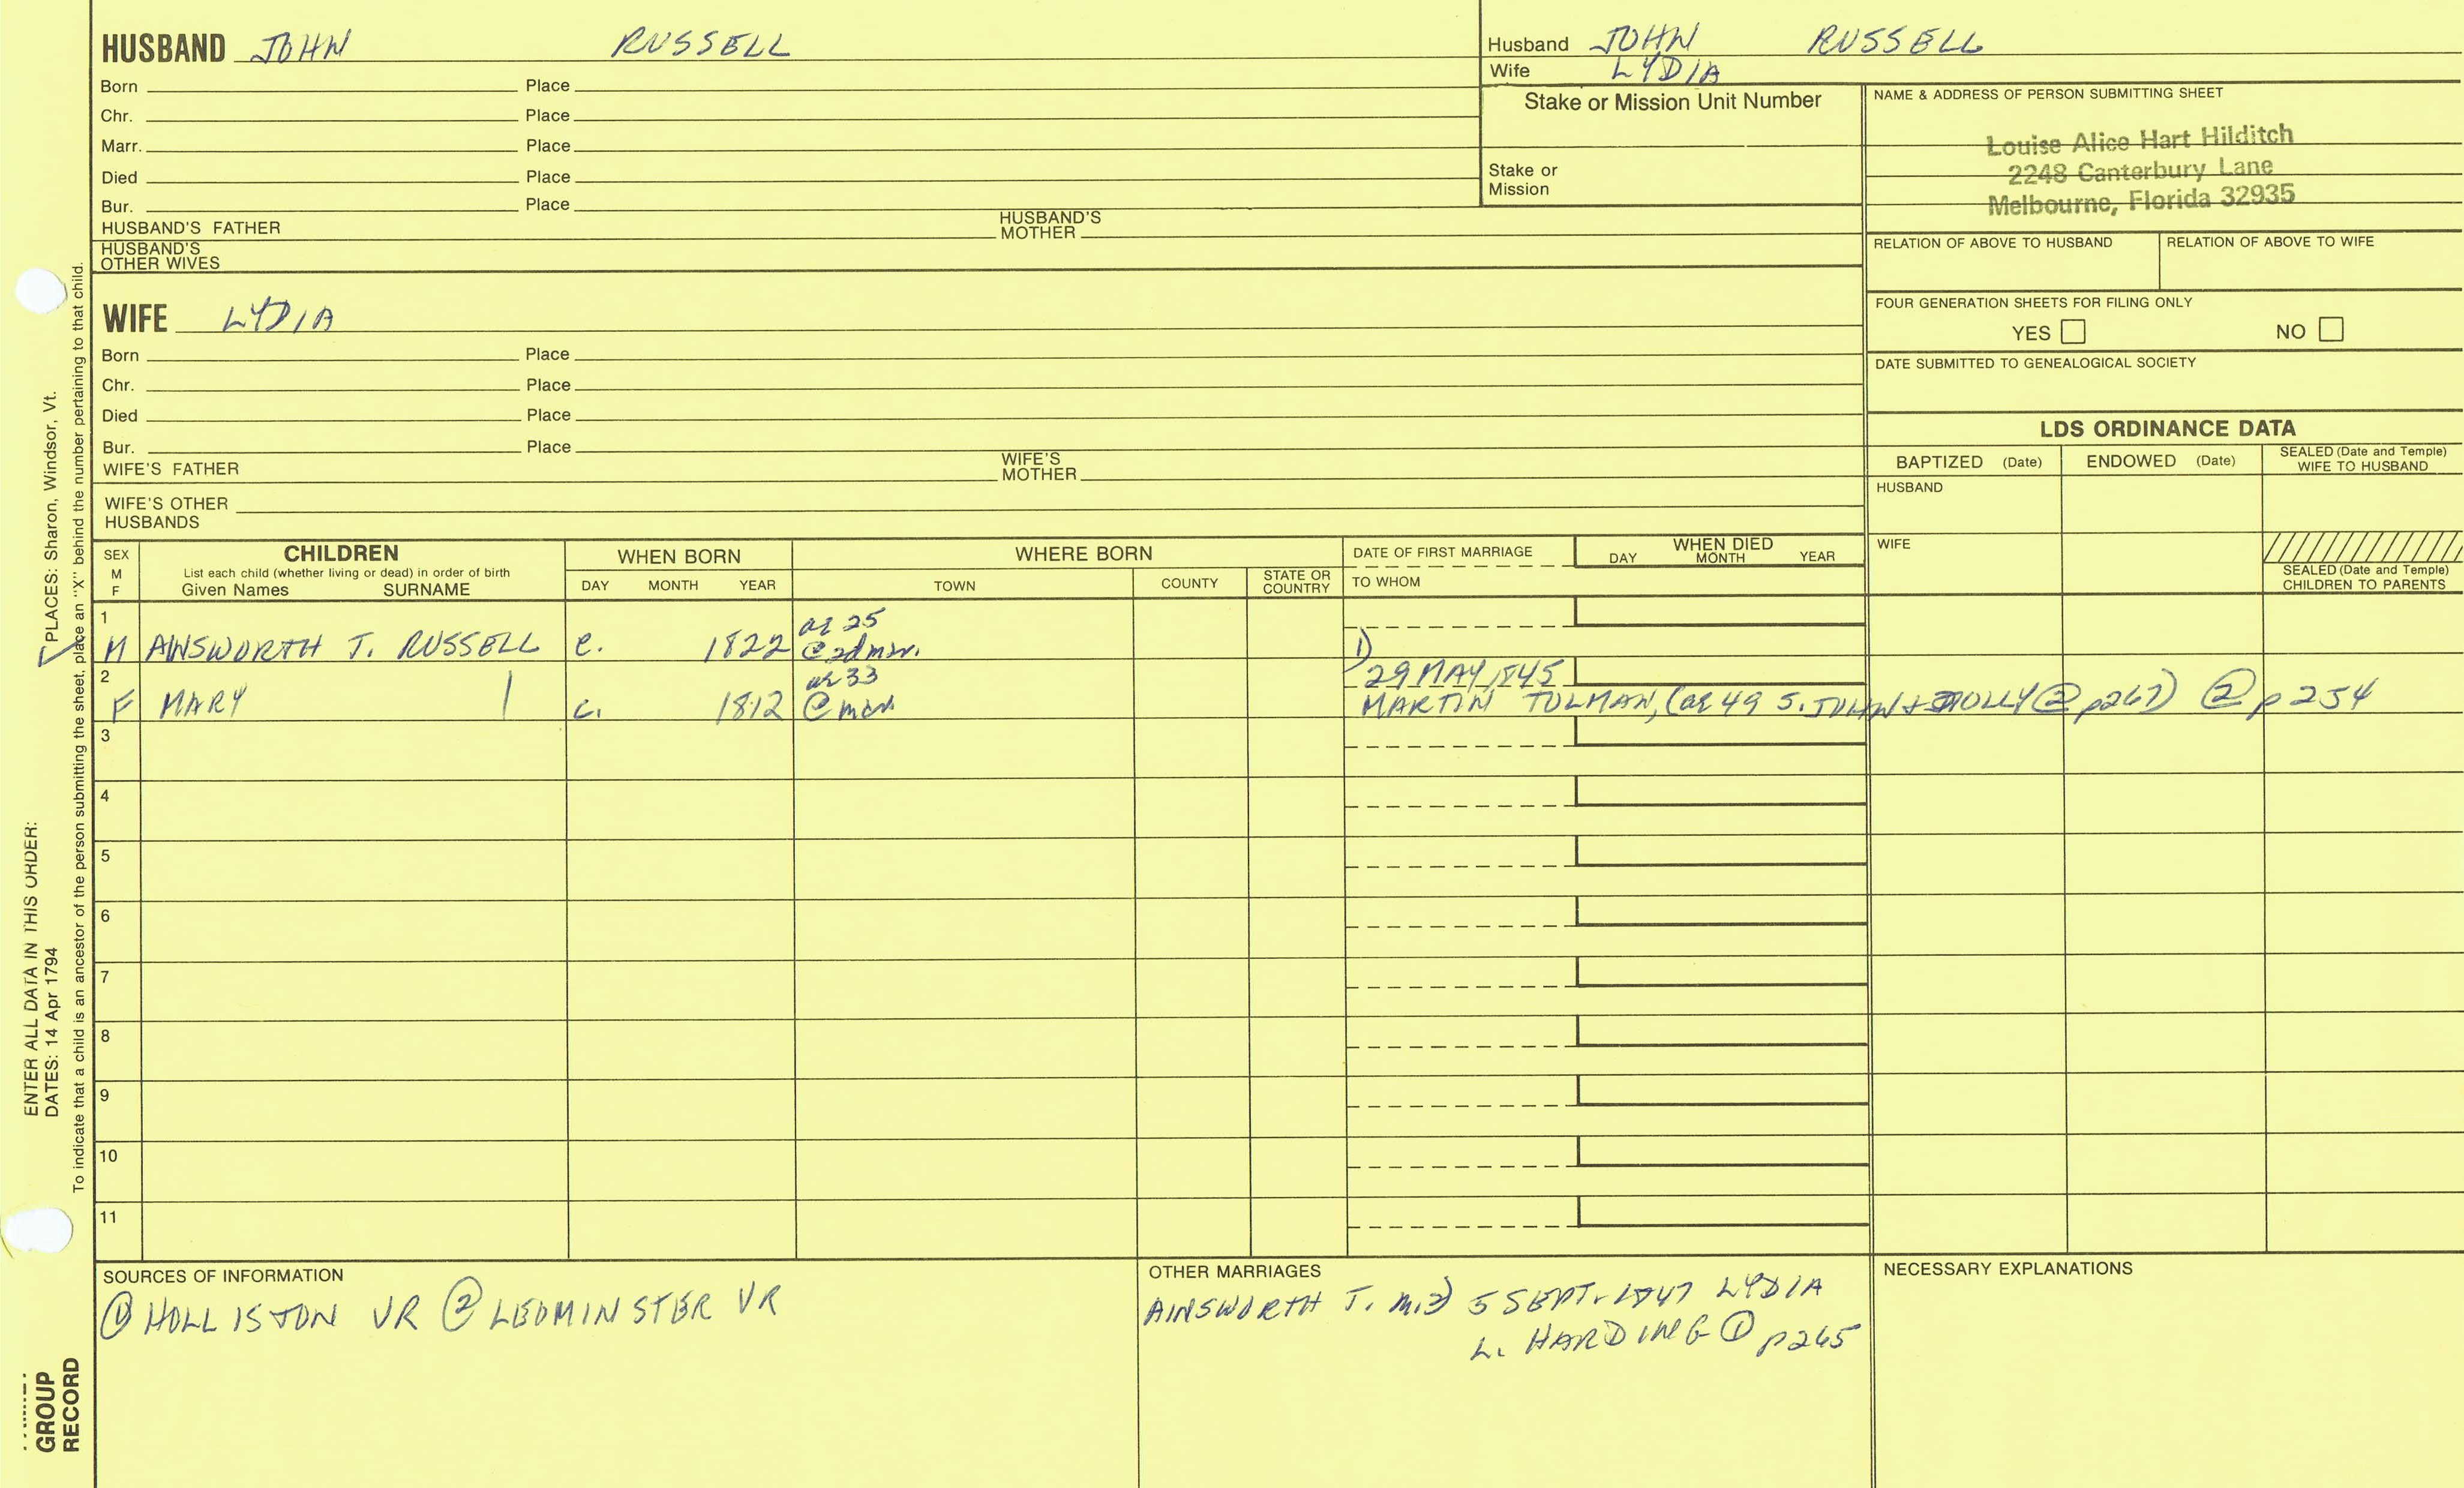 HUSBAND JOHN RUSSELL
Born Place
Chr. Place
Marr. Place
Died Place
Bur. Place
HUSBAND'S FATHER HUSBAND'S MOTHER
HUSBAND'S OTHER WIVES
Husband JOHN RUSSELL
Wife LYDIA
Stake or Mission Unit Number
Stake or
Mission
NAME & ADDRESS OF PERSON SUBMITTING SHEET
Louise Alice Hart Hilditch
2248 Canterbury Lane
Melbourne, Florida 32935
RELATION OF ABOVE TO HUSBAND RELATION OF ABOVE TO WIFE
FOUR GENERATION SHEETS FOR FILING ONLY
YES NO
DATE SUBMITTED TO GENEALOGICAL SOCIETY
WIFE LYDIA
Born Place
Chr. Place
Died Place
Bur. Place
WIFE'S FATHER WIFE'S MOTHER
WIFE'S OTHER
HUSBANDS
LDS ORDINANCE DATA
BAPTIZED (Date) ENDOWED (Date) SEALED (Date and Temple) WIFE TO HUSBAND
HUSBAND
WIFE
SEALED (Date and Temple)
CHILDREN TO PARENTS
SEX M F
CHILDREN
List each child (whether living or dead) in order of birth
Given Names SURNAME
WHEN BORN
DAY MONTH YEAR
WHERE BORN
TOWN COUNTY STATE OR COUNTRY
DATE OF FIRST MARRIAGE
TO WHOM
WHEN DIED
DAY MONTH YEAR
1 ae 25
M AINSWORTH T. RUSSELL c. 1822 @2dmar. 1)
2 ae 33 29 MAY 1845
F MARY | c. 1812 @mar MARTIN TOLMAN, (ae 49 S. JOHN + MOLLY ② p267) ② p254
3
4
5
6
7
8
9
10
11
SOURCES OF INFORMATION
① HOLLISTON VR ② LEOMINSTER VR
OTHER MARRIAGES
AINSWORTH T. m.2) 5 SEPT. 1847 LYDIA
L. HARDING ① p265
NECESSARY EXPLANATIONS
ENTER ALL DATA IN THIS ORDER:
DATES: 14 Apr 1794
PLACES: Sharon, Windsor, Vt.
To indicate that a child is an ancestor of the person submitting the sheet, place an "X" behind the number pertaining to that child.
GROUP
RECORD